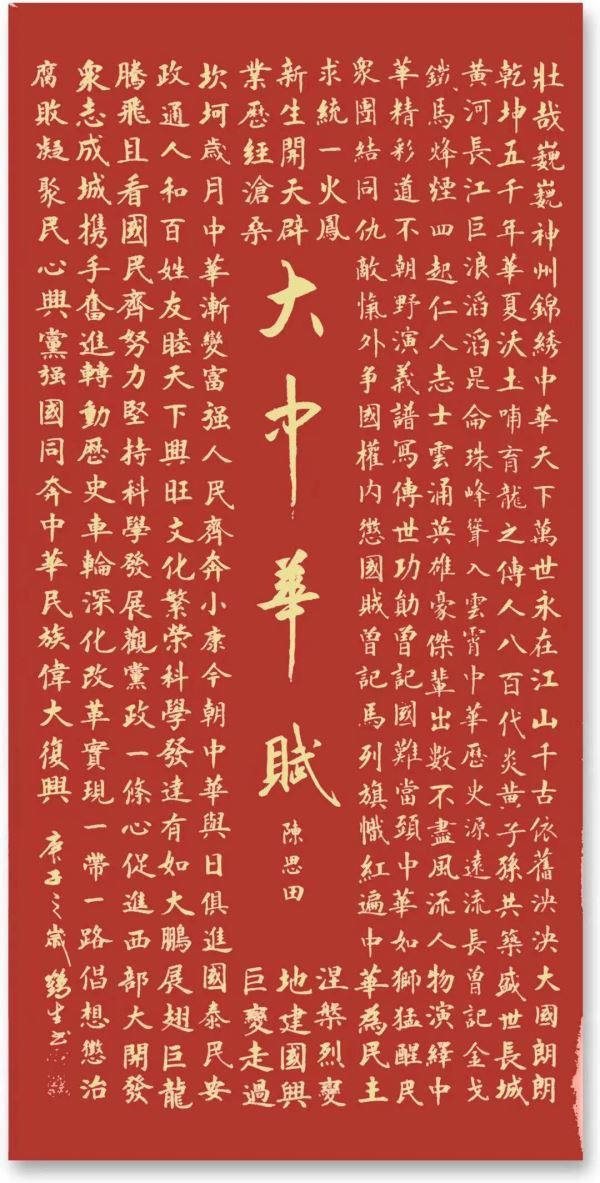 壯哉巍巍神州錦綉中華天下萬世永在江山千古依舊泱泱大國朗朗
乾坤五千年華夏沃土哺育龍之傳人八百代炎黄子孫共築盛世長城
黄河長江巨浪滔滔昆侖珠峰聳入雲霄中華歷史源遠流長曾記金戈
鐵馬烽煙四起仁人志士雲涌英雄豪傑輩出數不盡風流人物演繹中
華精彩道不朝野演義譜寫傳世功勛曾記國難當頭中華如獅猛醒民
衆團結同仇敵愾外争國權内懲國賊曾記馬列旗幟紅遍中華為民主
求統一火鳳涅槃烈變
新生開天辟地建國興
業歷經滄桑巨變走過
大中華賦
陳思田
坎坷歲月中華漸變富强人民齊奔小康今朝中華與日俱進國泰民安
政通人和百姓友睦天下興旺文化繁榮科學發達有如大鵬展翅巨龍
騰飛且看國民齊努力堅持科學發展觀黨政一條心促進西部大開發
衆志成城携手奮進轉動歷史車輪深化改革實現一帶一路倡想懲治
腐敗凝聚民心興黨强國同奔中華民族偉大復興
庚子之歲